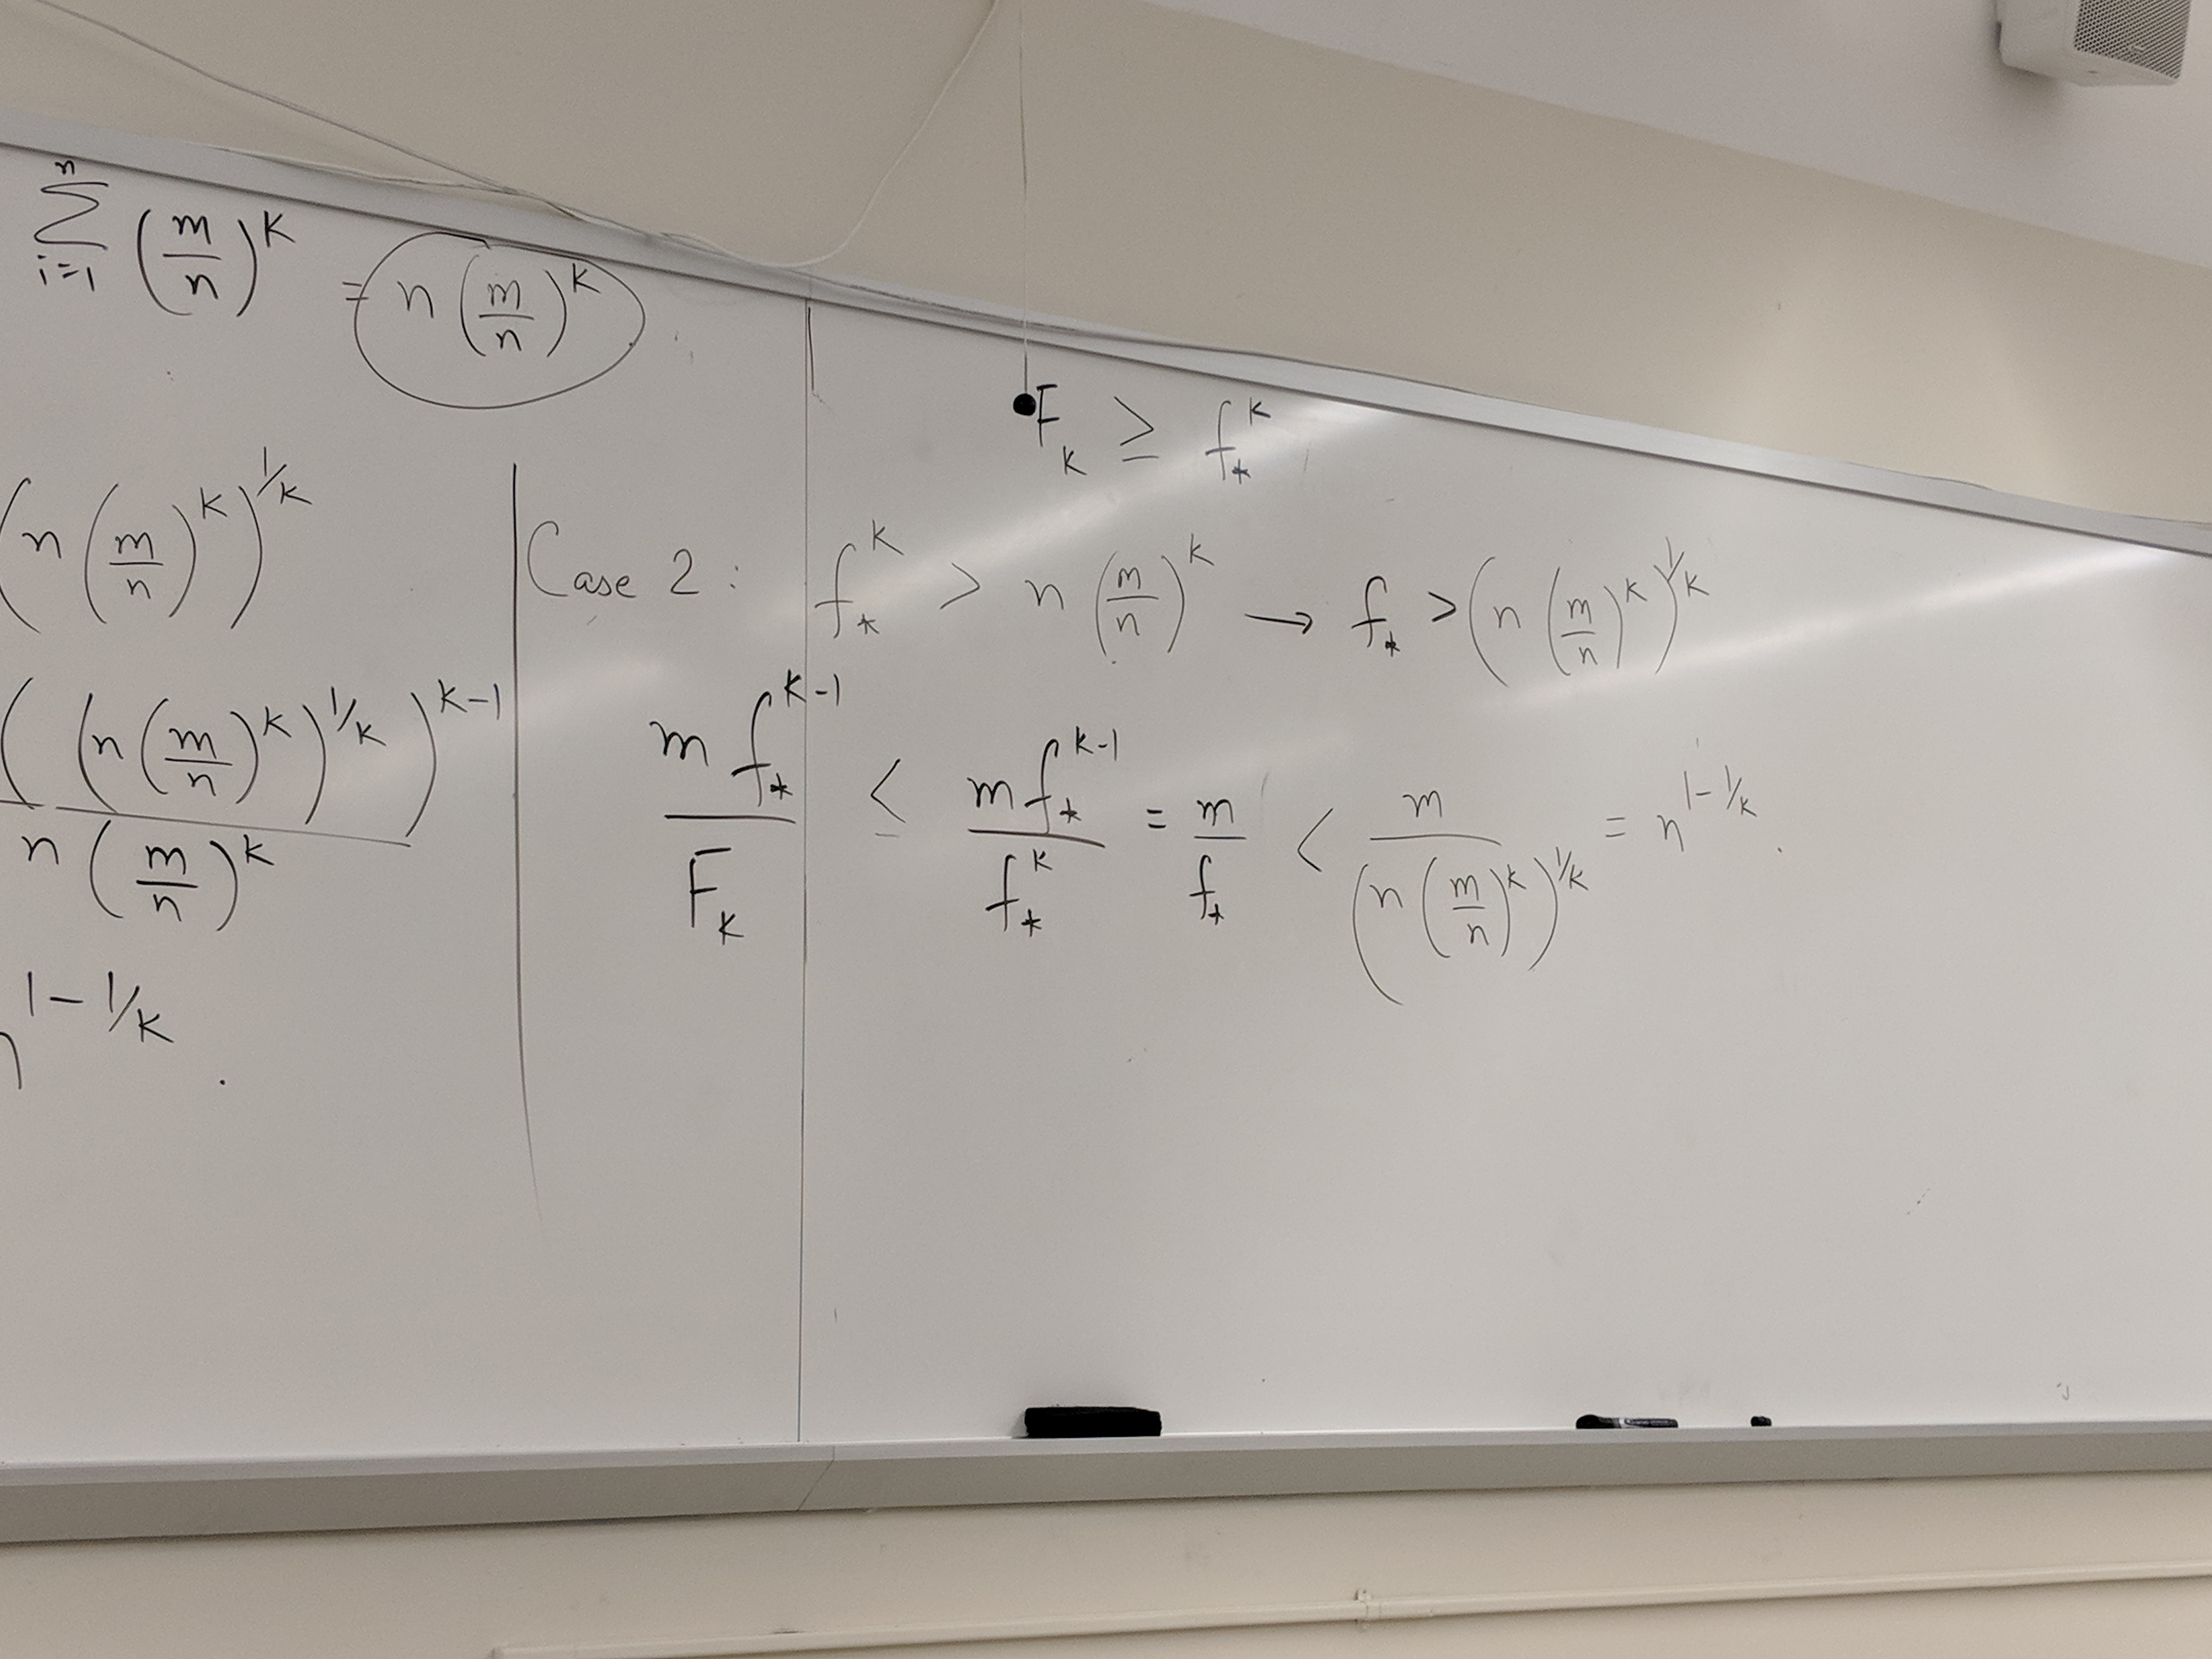 \sum_{i=1}^{n} \left(\frac{m}{n}\right)^k = n\left(\frac{m}{n}\right)^k
\left(n\left(\frac{m}{n}\right)^k\right)^{1/k}
\frac{\left(\left(n\left(\frac{m}{n}\right)^k\right)^{1/k}\right)^{k-1}}{n\left(\frac{m}{n}\right)^k}
n^{1-1/k}.
F_k \geq f_*^k
Case 2: f_*^k > n\left(\frac{m}{n}\right)^k \rightarrow f_* > \left(n\left(\frac{m}{n}\right)^k\right)^{1/k}
\frac{m f_*^{k-1}}{F_k} \leq \frac{m f_*^{k-1}}{f_*^k} = \frac{m}{f_*} < \frac{m}{\left(n\left(\frac{m}{n}\right)^k\right)^{1/k}} = n^{1-1/k}.